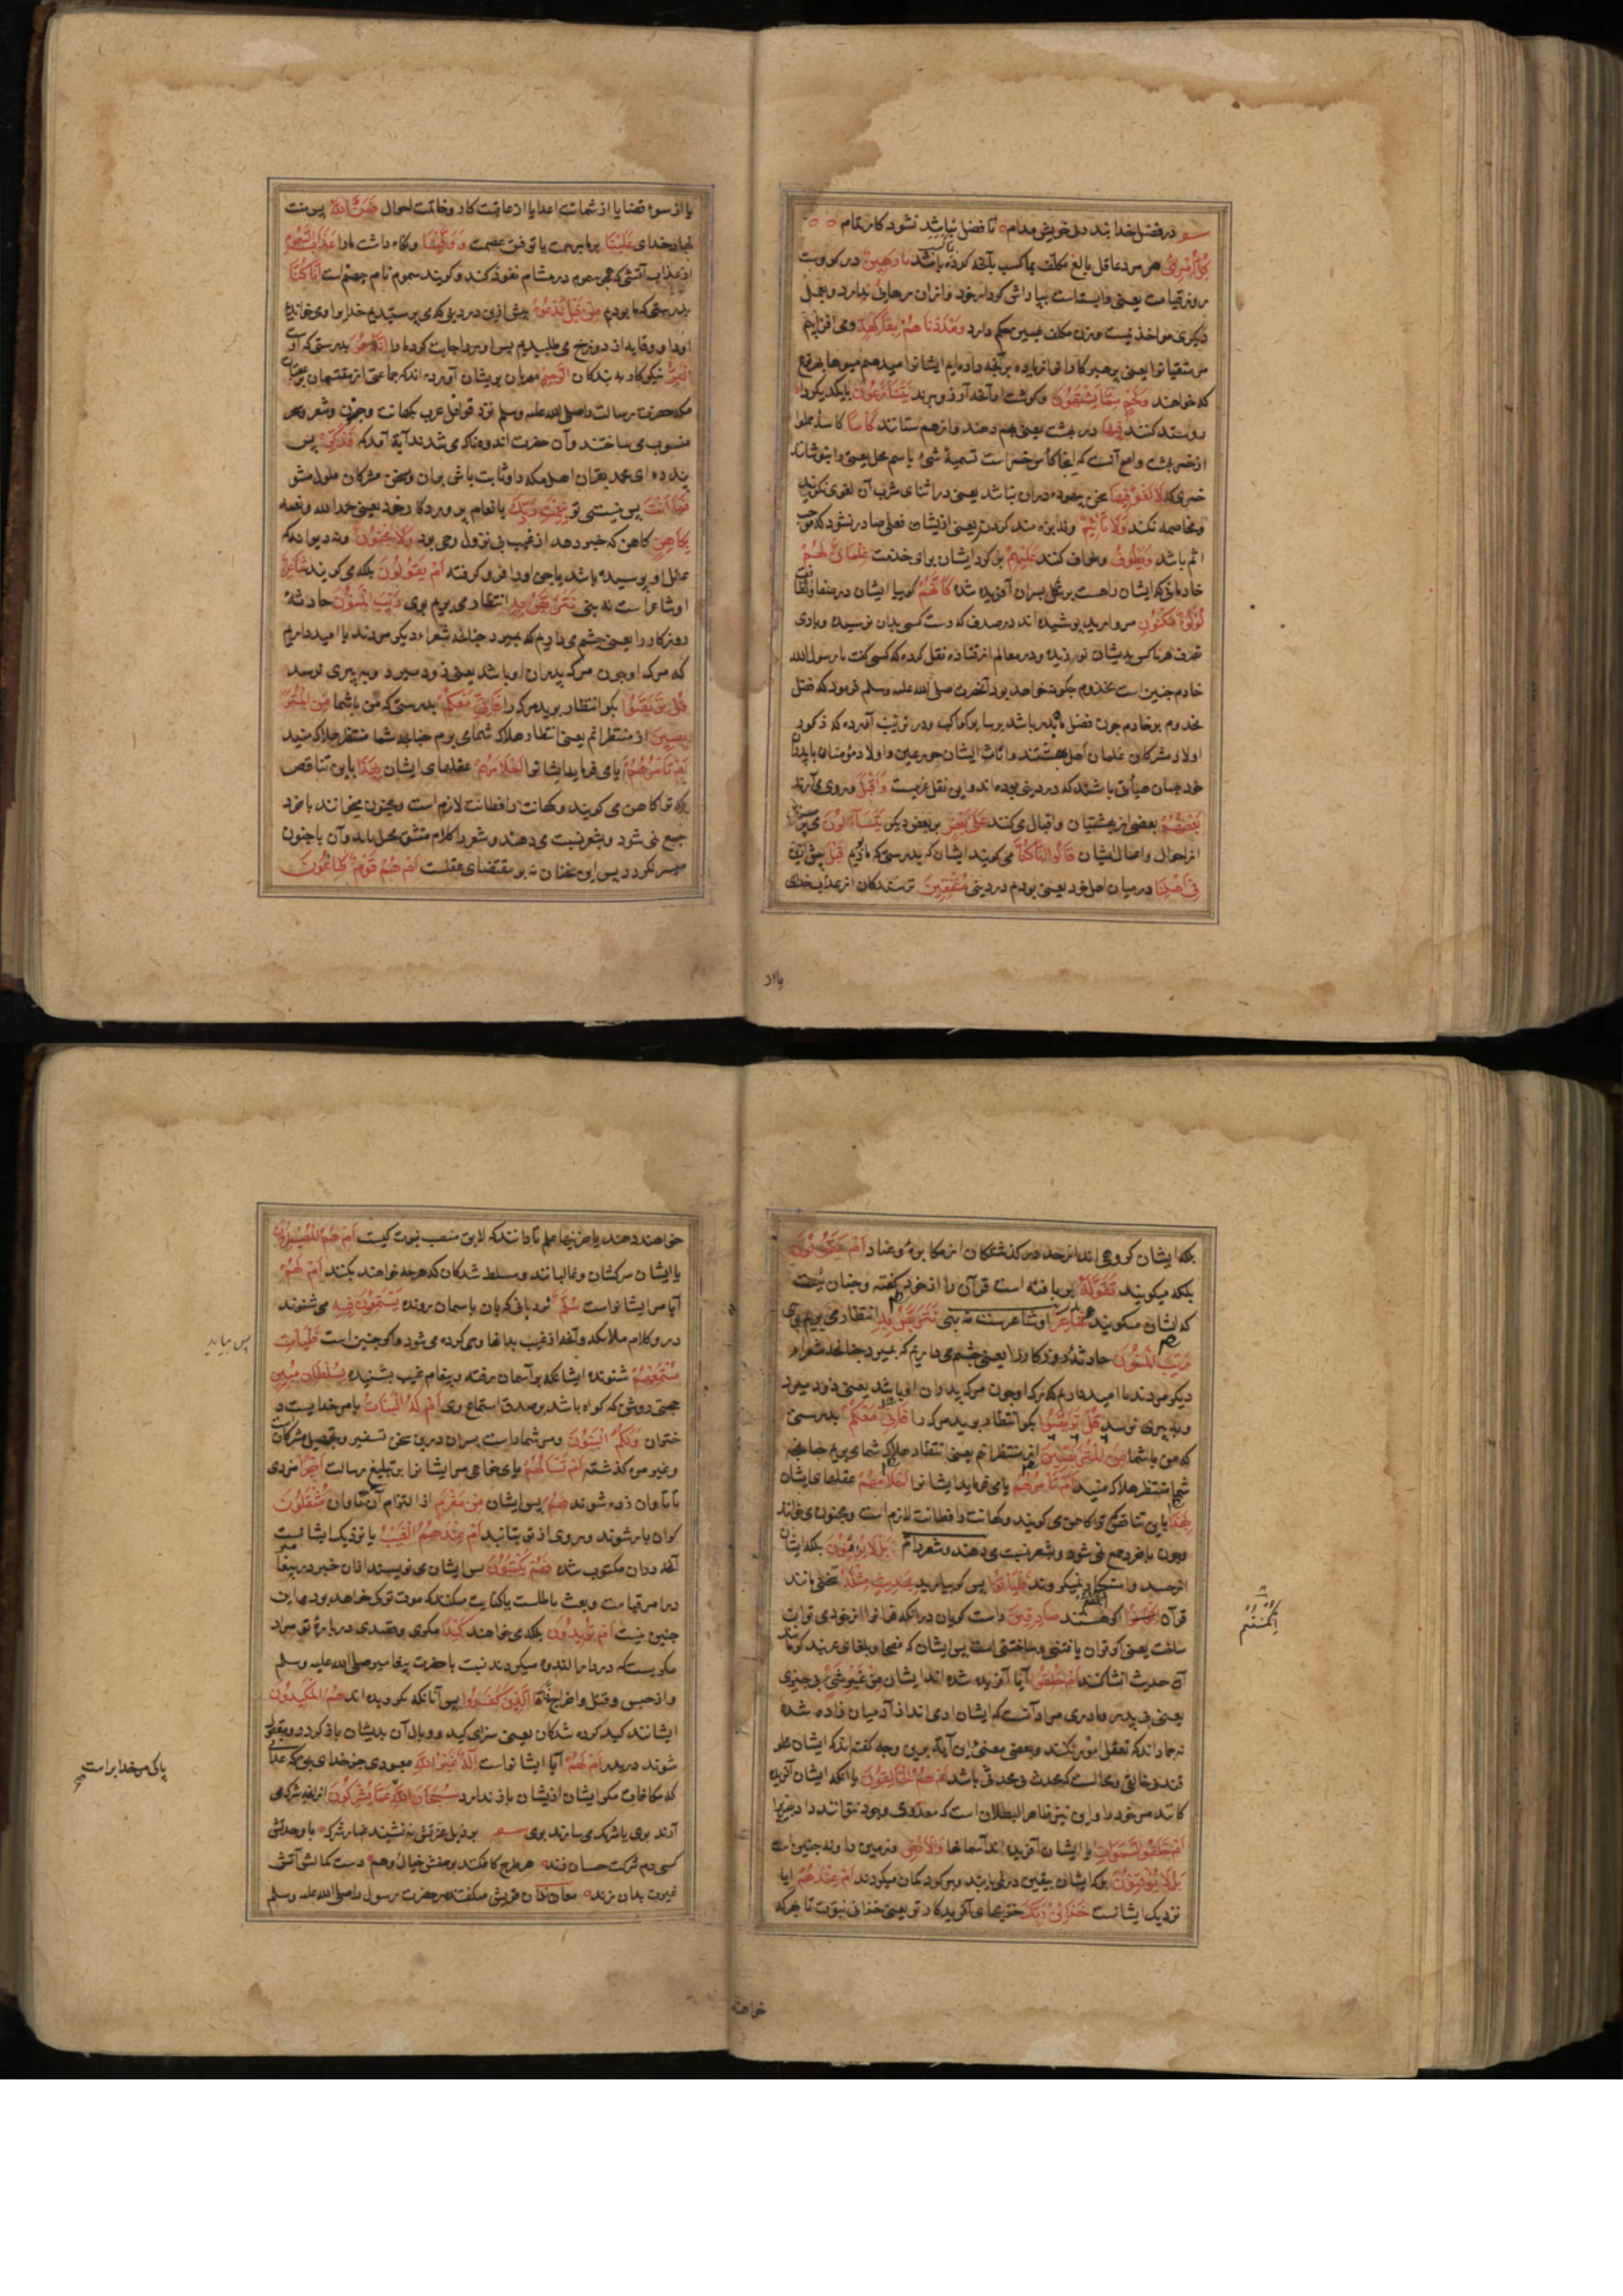 در فضل خدا بند دل خویش مدام تا فضل نباشد نشود کار تمام
كُلُّ امْرِئٍ هر مرد عاقل بالغ مکلف بما کسب بآنچه کرده باشد رَهِينٌ در کرو است
روز قیامت یعنی وابسته است بپاداش کردار خود و از ان رهایی ندارد و بعمل
دیکری مواخذ نیست وزن مکلف همین حکم دارد وَأَمْدَدْنَاهُمْ بِفَاكِهَةٍ و می افزاییم
که خواهند وَلَحْمٍ مِمَّا يَشْتَهُونَ و کوشت از آنچه آرزو برند يَتَنَازَعُونَ بیکدیکر
رد و ستد کنند فِيهَا در بهشت یعنی بهم دهند و از هم ستانند كَأْسًا کاسه مملو
از خمر بهشت تسمیهٔ شیء باسم محل یعنی بنوشانند
خمری که لَا لَغْوٌ فِيهَا سخن بیهوده دران نباشد یعنی در اثنای شرب آن لغوی نکویند
و مخاصمه نکنند وَلَا تَأْثِيمٌ و نه بزه مند کردن یعنی ازیشان فعلی صادر نشود که موجب
اثم باشد وَيَطُوفُ و طواف کنند عَلَيْهِمْ بر کرد ایشان برای خدمت غِلْمَانٌ لَهُمْ
خادمان که ایشان راست بر شکل پسران آفریده شده كَأَنَّهُمْ کوییا ایشان در صفا و لطافت
لُؤْلُؤٌ مَكْنُونٌ مروارید پوشیده اند در صدف که دست کسی بدان نرسیده
تصرف هر ناکس بدیشان نورزیده و در معالم از قتاده نقل کرده که کسی کفت یا رسول الله
خادم چنین است مخدوم چکونه خواهد بود آنحضرت صلی الله علیه وسلم فرمود که فضل
مخدوم بر خادم چون فضل ماه بدر باشد بر سایر کواکب
اولاد مشرکان غلمان اهل بهشتند و اناث ایشان حور عین و اولاد مؤمنان با پدران
خود همان هیأتی باشند که در دنیا بوده اند و این نقل غریبست وَأَقْبَلَ و روی می آرند
بَعْضُهُمْ بعضی از بهشتیان و اقبال می کنند عَلَى بَعْضٍ بر بعض دیکر يَتَسَاءَلُونَ می پرسند
از احوال و اعمال ایشان قَالُوا إِنَّا كُنَّا می کویند ایشان که بدرستی که ما بودیم قَبْلُ پیش ازین
فِي أَهْلِنَا در میان اهل خود یعنی بودیم در دنیا مُشْفِقِينَ ترسندکان از عذاب خدای
یا از
یا از سوء قضا یا از شماتت اعدا یا از عاقبت کار و خاتمت احوال فَمَنَّ اللَّهُ پس منت
نهاد خدای عَلَيْنَا بر ما برحمت یا توفیق عصمت وَوَقَانَا و نکاه داشت ما را عَذَابَ السَّمُومِ
از عذاب آتشی که همچو سموم در مسام نفوذ کند و کویند سموم نام جهنم است إِنَّا كُنَّا
بدرستی که ما بودیم مِنْ قَبْلُ نَدْعُوهُ پیش ازین در دنیا که می پرستیدیم خدایرا و می خواندیم
او را و وقایه از دوزخ می طلبیدیم پس او نیز اجابت کرد ما را إِنَّهُ هُوَ بدرستی که او
الْبَرُّ نیکوکار به بندکان الرَّحِيمُ مهربان بریشان آورده اند که جماعتی از مقتسمان بر عقبات
مکه حضرت رسالت را صلی الله علیه وسلم نزد قوافل عرب بکهانت و جنون و شعر و سحر
منسوب می ساختند و آن حضرت اندوهناک می شدند آیة آمد که فَذَكِّرْ پس
پند ده ای محمد بقرآن اهل مکه را و ثابت باش بران و بسخن مشرکان ملول مشو
فَمَا أَنْتَ پس نیستی تو بِنِعْمَتِ رَبِّكَ بانعام پروردکار خود یعنی بحمد الله و نعمه
بِكَاهِنٍ کاهن که خبر دهد از غیب بی نزول وحی بود وَلَا مَجْنُونٍ و نه دیوانه که
عقل او پوسیده باشد یا جن او را فرو کرفته أَمْ يَقُولُونَ بلکه می کویند شَاعِرٌ
او شاعر است نه نبی نَتَرَبَّصُ بِهِ انتظار می بریم بوی رَيْبَ الْمَنُونِ حادثهٔ
روزکار را یعنی چشم می داریم که بمیرد چنانچه شعراء دیکر مردند یا امید داریم
که مرک او چون مرک پدران او باشد یعنی زود میرد و به پیری نرسد
قُلْ تَرَبَّصُوا بکو انتظار برید مرک را فَإِنِّي مَعَكُمْ بدرستی که من با شما مِنَ الْمُتَرَبِّصِينَ
از منتظرانم یعنی انتظار هلاک شما می برم چنانچه شما منتظر هلاک منید
أَمْ تَأْمُرُهُمْ یا می فرماید ایشانرا أَحْلَامُهُمْ عقلهای ایشان بِهَذَا باین تناقض
که ترا کاهن می کویند و کهانت را فطانت لازم است و مجنون میخوانند با خرد
جمع نمی شود و بشعر نسبت می دهند و شعر را کلام متسق مخیل باید و آن با جنون
میسر نکردد پس این سخنان نه بر مقتضای عقلست أَمْ هُمْ قَوْمٌ طَاغُونَ
بلکه ایشان کروهی اند از حد در کذشتکان از مکابره و عناد أَمْ يَقُولُونَ
بلکه میکویند تَقَوَّلَهُ بربافته است قرآن را از خود کفته و چنان نیست
که ایشان میکویند شَاعِرٌ او شاعرست نه نبی نَتَرَبَّصُ بِهِ انتظار می بریم بوی
رَيْبَ الْمَنُونِ حادثهٔ روزکار را یعنی چشم می داریم که بمیرد چنانچه شعراء
دیکر مردند یا امید داریم که مرک او چون مرک پدران او باشد یعنی زود میرد
و به پیری نرسد قُلْ تَرَبَّصُوا بکو انتظار برید مرک را فَإِنِّي مَعَكُمْ بدرستی
که من با شما مِنَ الْمُتَرَبِّصِينَ از منتظرانم یعنی انتظار هلاک شما می برم چنانچه
شما منتظر هلاک منید أَمْ تَأْمُرُهُمْ یا می فرماید ایشانرا أَحْلَامُهُمْ عقلهای ایشان
بِهَذَا باین تناقض که ترا کاهن می کویند و کهانت را فطانت لازم است و مجنون می خوانند
و جنون با خرد جمع نمی شود و بشعر نسبت می دهند و شعر دانم بَلْ لَا يُؤْمِنُونَ بلکه ایشان
از حسد و استکبار نمیکروند فَلْيَأْتُوا پس کو بیارید بِحَدِيثٍ مِثْلِهِ سخنی مانند
قرآن إِنْ كَانُوا اکر هستند صَادِقِينَ راست کویان در آنکه قرآنرا از خود می توان
ساخت
آن حدیث انشا کنند أَمْ خُلِقُوا آیا آفریده شده اند ایشان مِنْ غَيْرِ شَيْءٍ بی چیزی
یعنی بی پدر و مادری مراد آنست که ایشان آدمی اند از آدمیان زاده شده
نه جماد اند که تعقل امور نکنند و بعضی معنی این آیة برین وجه کفته اند که ایشان خلق
شدند بی خالقی و محالست که محدث بی محدثی باشد أَمْ هُمُ الْخَالِقُونَ یا آنکه ایشان آفریده
کانند مر خود را و این نیز ظاهر البطلان است که معدوم وجود نتواند داد چیزیرا
أَمْ خَلَقُوا السَّمَوَاتِ یا ایشان آفریده اند آسمانها وَالْأَرْضَ و زمین را و نه چنین است
بَلْ لَا يُوقِنُونَ بلکه ایشان بیقین در نمی یابند و بر کرد کمان میکردند أَمْ عِنْدَهُمْ آیا
نزدیک ایشانست خَزَائِنُ رَبِّكَ خزینهای آفریدکار تو یعنی خزاین نبوت تا هر که
خواهند
خواهند دهند یا خزینهای علم تا دانند که لایق منصب نبوت کیست أَمْ هُمُ الْمُصَيْطِرُونَ
یا ایشان سرکشان و غالبانند و مسلط شدکان که هر چه خواهند بکنند أَمْ لَهُمْ
آیا مر ایشانراست سُلَّمٌ نردبانی که بان باسمان رونده يَسْتَمِعُونَ فِيهِ می شنوند
در و کلام ملائکه و آنچه از غیب بدانها وحی کرده می شود و اکر چنین است فَلْيَأْتِ
پس بیاید
مُسْتَمِعُهُمْ شنونده ایشان که بر آسمان رفته و پیغام غیب شنیده بِسُلْطَانٍ مُبِينٍ
حجتی روشن که کواه باشد بر صدق استماع وی أَمْ لَهُ الْبَنَاتُ یا مر خدایست
دختران وَلَكُمُ الْبَنُونَ و مر شما راست پسران درین سخن
أَمْ تَسْأَلُهُمْ یا می خواهی مر ایشانرا بر تبلیغ رسالت أَجْرًا مزدی
تا تاوان زده شوند فَهُمْ پس ایشان مِنْ مَغْرَمٍ از التزام آن تاوان مُثْقَلُونَ
کران بار شوند و روی از تو بتابند أَمْ عِنْدَهُمُ الْغَيْبُ یا نزدیک ایشانست
آنچه دران مکتوب شده فَهُمْ يَكْتُبُونَ پس ایشان می نویسند ازان خبر
جنین نیست أَمْ يُرِيدُونَ بلکه می خواهند كَيْدًا مکری و قصدی در بارهٔ تو مراد
مکریست که در دار الندوه میکردند نسبت با حضرت پیغامبر صلی الله علیه وسلم
و از حبس و قتل و اخراج فَالَّذِينَ كَفَرُوا پس آنانکه نکرویده اند هُمُ الْمَكِيدُونَ
ایشانند کید کرده شدکان یعنی سزای کید و وبال آن بدیشان باز کردد
شوند در بدر أَمْ لَهُمْ آیا ایشانراست إِلَهٌ غَيْرُ اللَّهِ معبودی جز خدای
که مکافات مکر ایشان ازیشان باز ندارد سُبْحَانَ اللَّهِ عَمَّا يُشْرِكُونَ از آنچه شرک می
پاکی مر خدایراست
آرند بوی یا شریک می سازند بوی بر ذیل عزتش ننشیند غبار شرک با وحدتش
کسی دم شرکت چسان زند هر طرح کافکند بر نقش خیال و وهم دست کمالش آتش
غیرت بدان زند معاندان قریش میکفتند حضرت رسول را صلی الله علیه وسلم